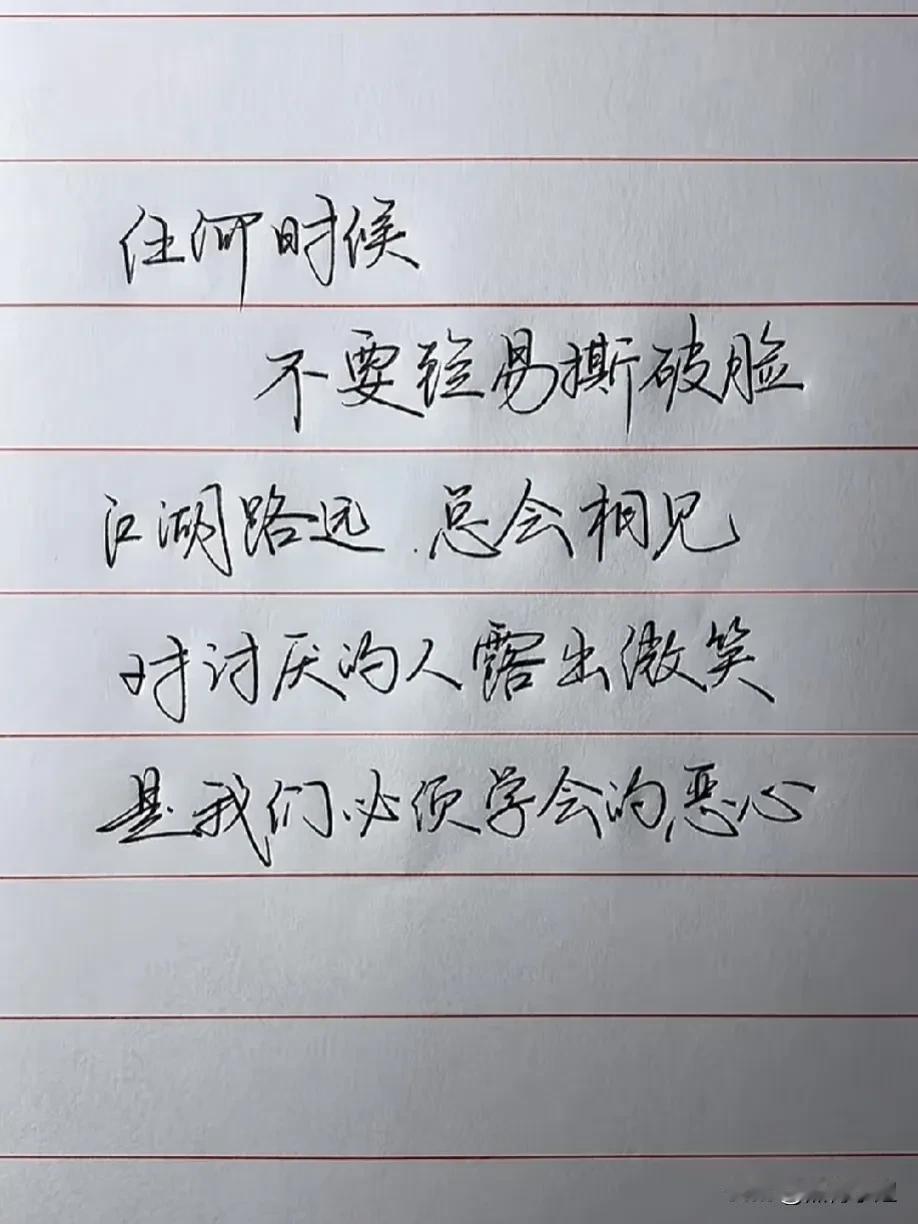 任何时候
不要轻易撕破脸
江湖路远.总会相见
对讨厌的人露出微笑
是我们必须学会的恶心